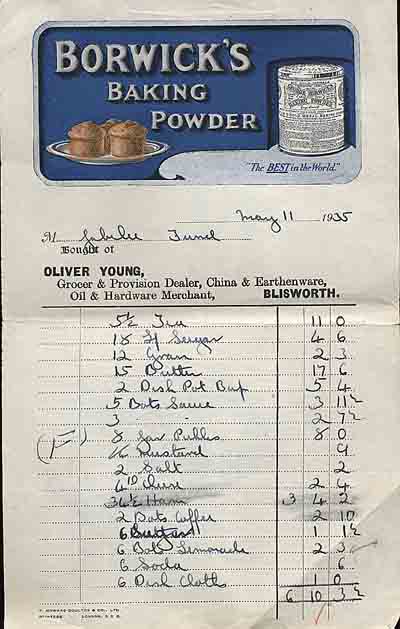 BORWICK'S
BAKING
POWDER
"The BEST in the World."
May 11 1935
M Jubilee Fund
Bought of
OLIVER YOUNG,
Grocer & Provision Dealer, China & Earthenware,
Oil & Hardware Merchant, BLISWORTH.
5½ Tea 11 0
18 Lf Sugar 4 6
12 Gran 2 3
15 Butter 17 6
2 Dish 5 4
5 Bots Sauce 3 11½
3 " 2 7½
8 Jar Pickles 8 0
Mustard 9
2 Salt 2
2 4
Ham 3 4 2
2 Bots Coffee 2 10
6 1 1½
6 Bots Lemonade 2 3
6 Soda 6
6 Dish Cloths 1 0
6 10 3½